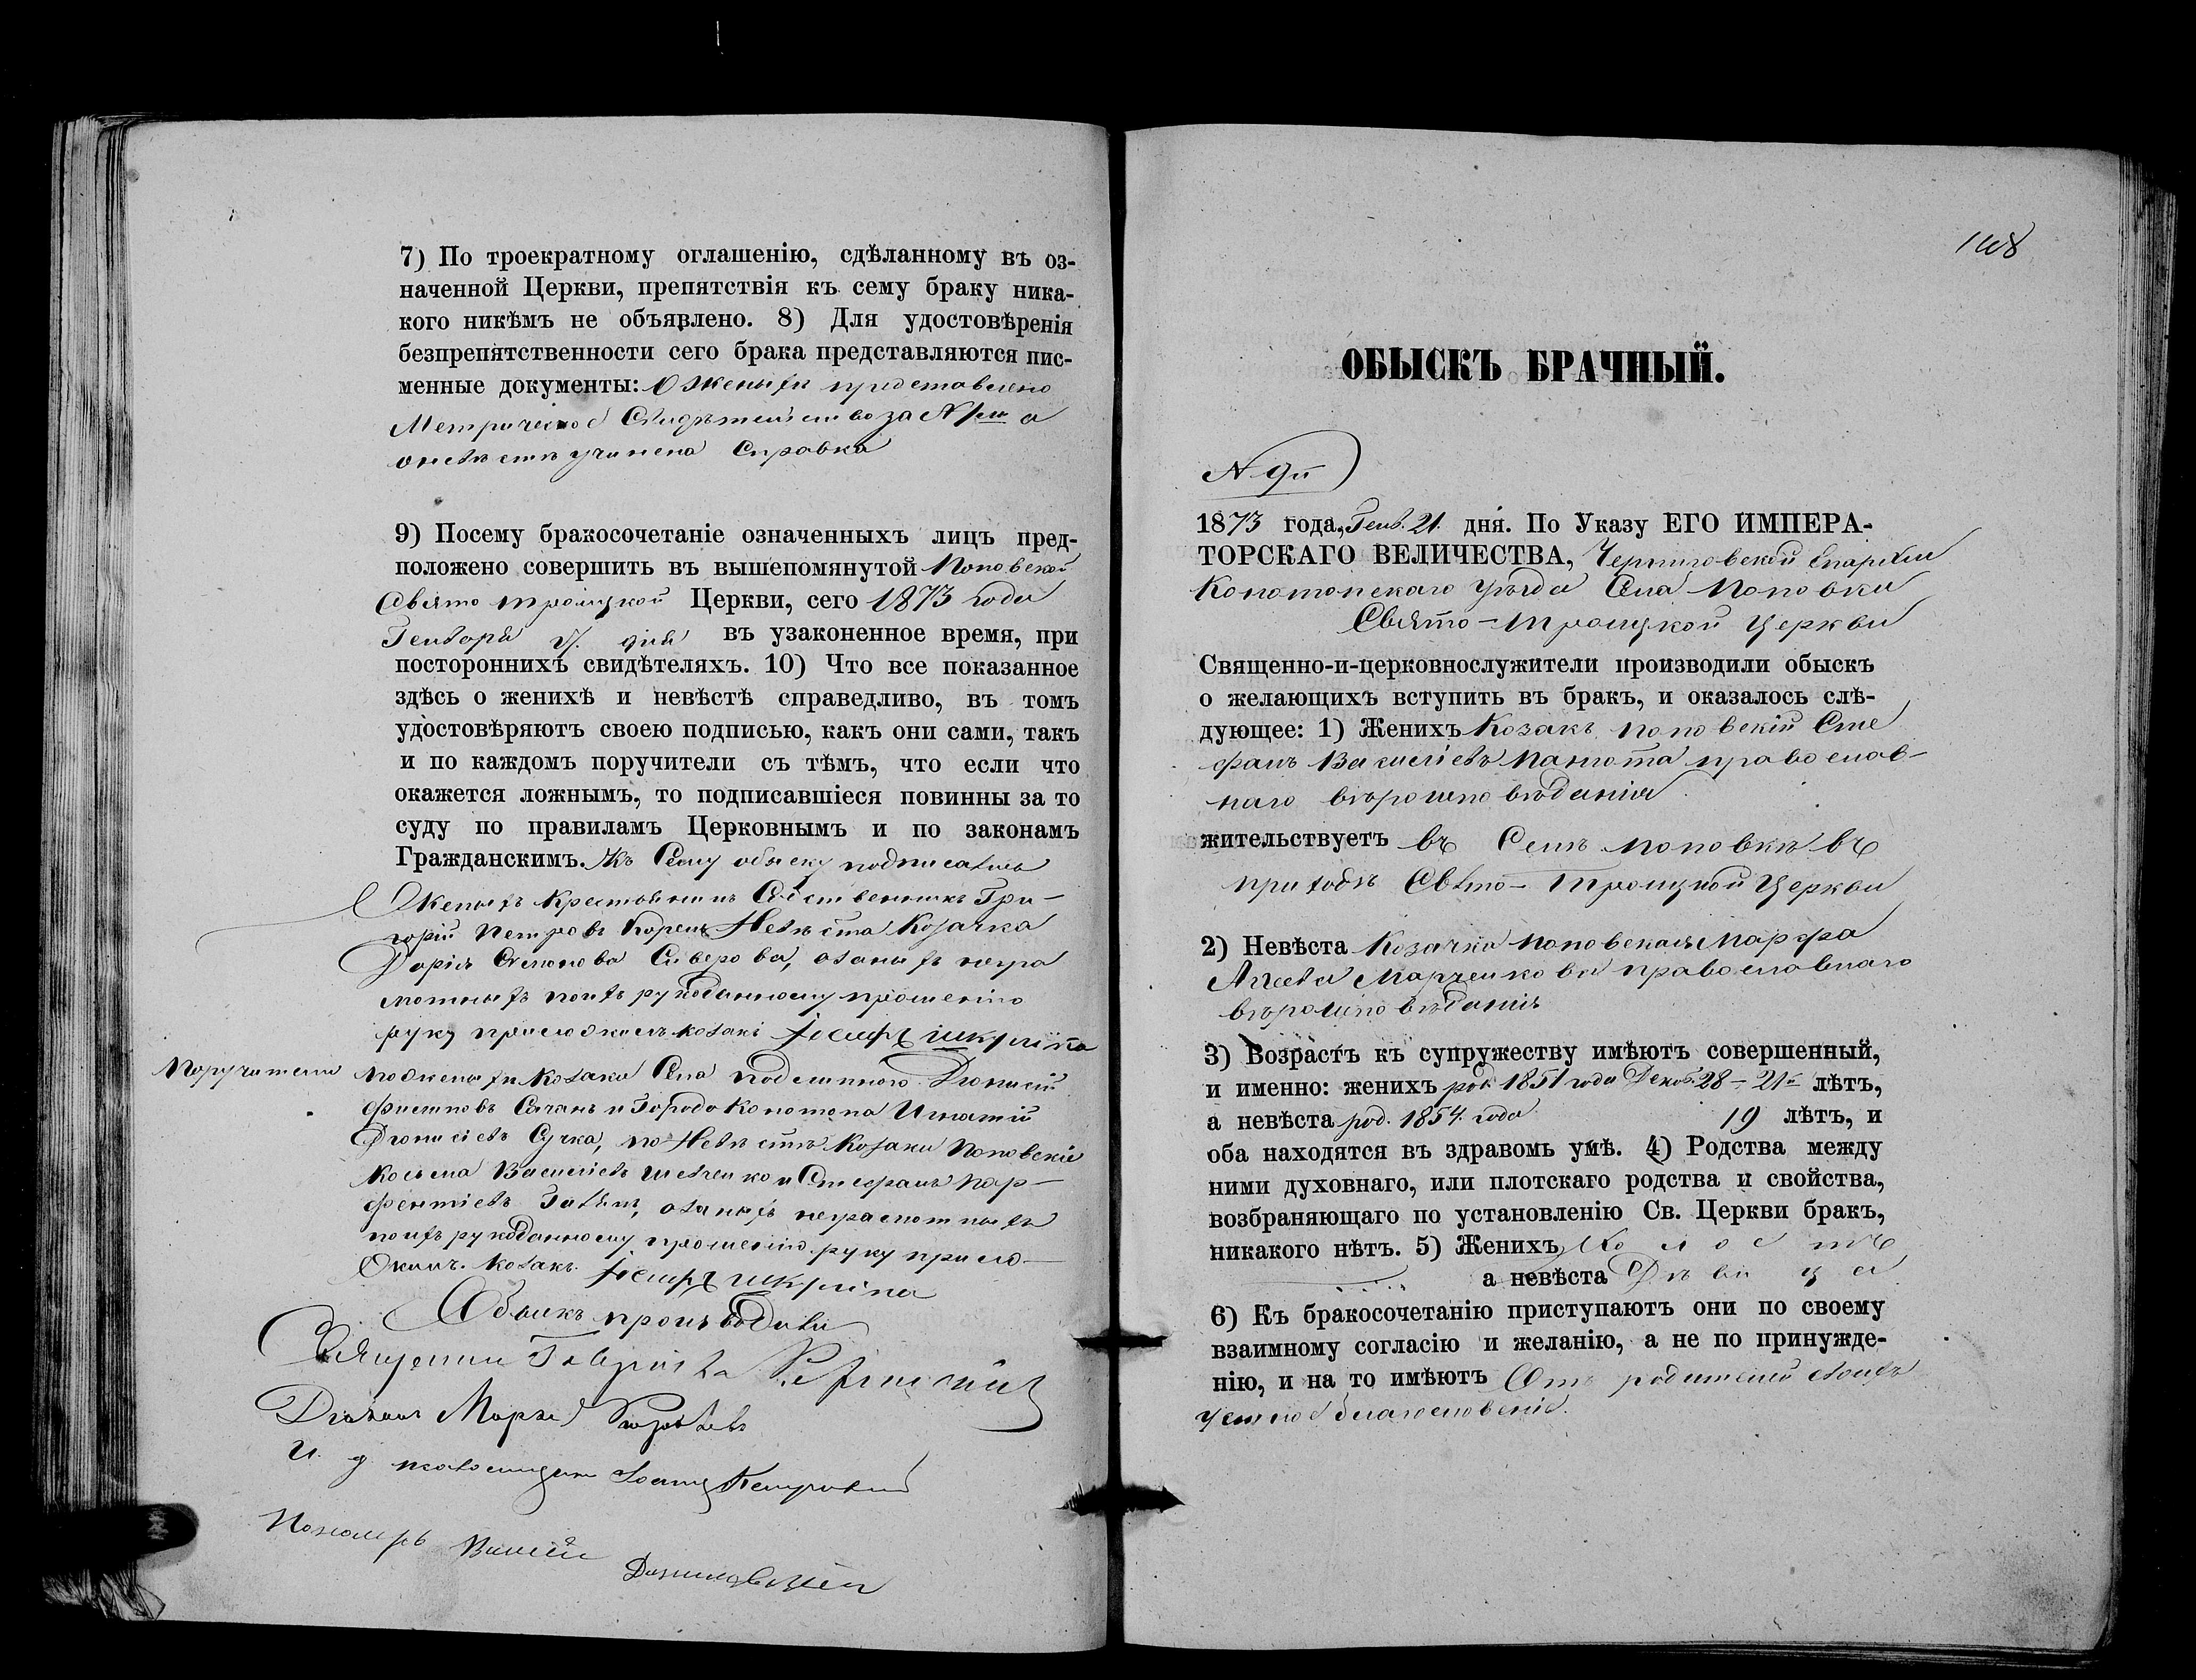 7) По троекратному оглашенію, сдѣланному въ оз-
наченной Церкви, препятствія къ сему браку ника-
кого никѣмъ не объявлено. 8) Для удостовѣренія
безпрепятственности сего брака представляются пис-
менные документы: О женихѣ представлено
Метрическое Свидѣтельство за № а
о невѣстѣ учинена Справка
9) Посему бракосочетаніе означенныхъ лицъ пред-
положено совершить въ вышепомянутой Поповской
Свято Троицкой Церкви, сего 1873 года
Генваря дня въ узаконенное время, при
постороннихъ свидѣтеляхъ. 10) Что все показанное
здѣсь о женихѣ и невѣстѣ справедливо, въ томъ
удостовѣряютъ своею подписью, какъ они сами, такъ
и по каждомъ поручители съ тѣмъ, что если что
окажется ложнымъ, то подписавшіеся повинны за то
суду по правиламъ Церковнымъ и по законамъ
Гражданскимъ. Къ Сему обыску подписались
Женихъ Крестьянинъ Собственникъ Гри-
горій Петровъ Корень Невѣста Козачка
Дарія Симонова Сиверова, а за нихъ негра
мотныхъ по ихъ рукоданному прошенію
руку приложилъ козакъ Іосифъ Шкуліпа
Поручители По женихѣ Козаки Села Подлипного Діонисій
Филиповъ Сачанъ и Города Конотопа Игнатій
Діонисіевъ Сучка, по Невѣстѣ Козаки Поповскіе
Косьма Василіевъ Шевченко и Стефанъ Пар-
фентіевъ, а за нихъ неграмотныхъ
по ихъ рукоданному прошенію руку прило-
жилъ Козакъ Іосифъ Шкуліпа
Обыскъ производили
Священникъ
Діаконъ
И. д. псаломщика
Пономарь Василій Данилевскій
148
ОБЫСКЪ БРАЧНЫЙ.
№ 9й
1873 года, Генв. 21. дня. По Указу ЕГО ИМПЕРА-
ТОРСКАГО ВЕЛИЧЕСТВА, Черниговской Епархіи
Конотопскаго уѣзда Села Поповки
Свято-Троицкой Церкви
Священно-и-церковнослужители производили обыскъ
о желающихъ вступить въ бракъ, и оказалось слѣ-
дующее: 1) Женихъ Козакъ Поповскій Сте
фанъ Василіевъ Панюта православ-
наго вѣроисповѣданія
жительствуетъ въ Селѣ Поповкѣ въ
приходѣ Свято-Троицкой Церкви
2) Невѣста Козачка Поповская Марфа
Марченкова православнаго
вѣроисповѣданія
3) Возрастъ къ супружеству имѣютъ совершенный,
и именно: женихъ род. 1851 года Декаб. 28 - 21 лѣтъ,
а невѣста род. 1854. года 19 лѣтъ, и
оба находятся въ здравомъ умѣ. 4) Родства между
ними духовнаго, или плотскаго родства и свойства,
возбраняющаго по установленію Св. Церкви бракъ,
никакого нѣтъ. 5) Женихъ Холостъ
а невѣста Дѣвица
6) Къ бракосочетанію приступаютъ они по своему
взаимному согласію и желанію, а не по принужде-
нію, и на то имѣютъ Отъ родителей своихъ
устное благословеніе.